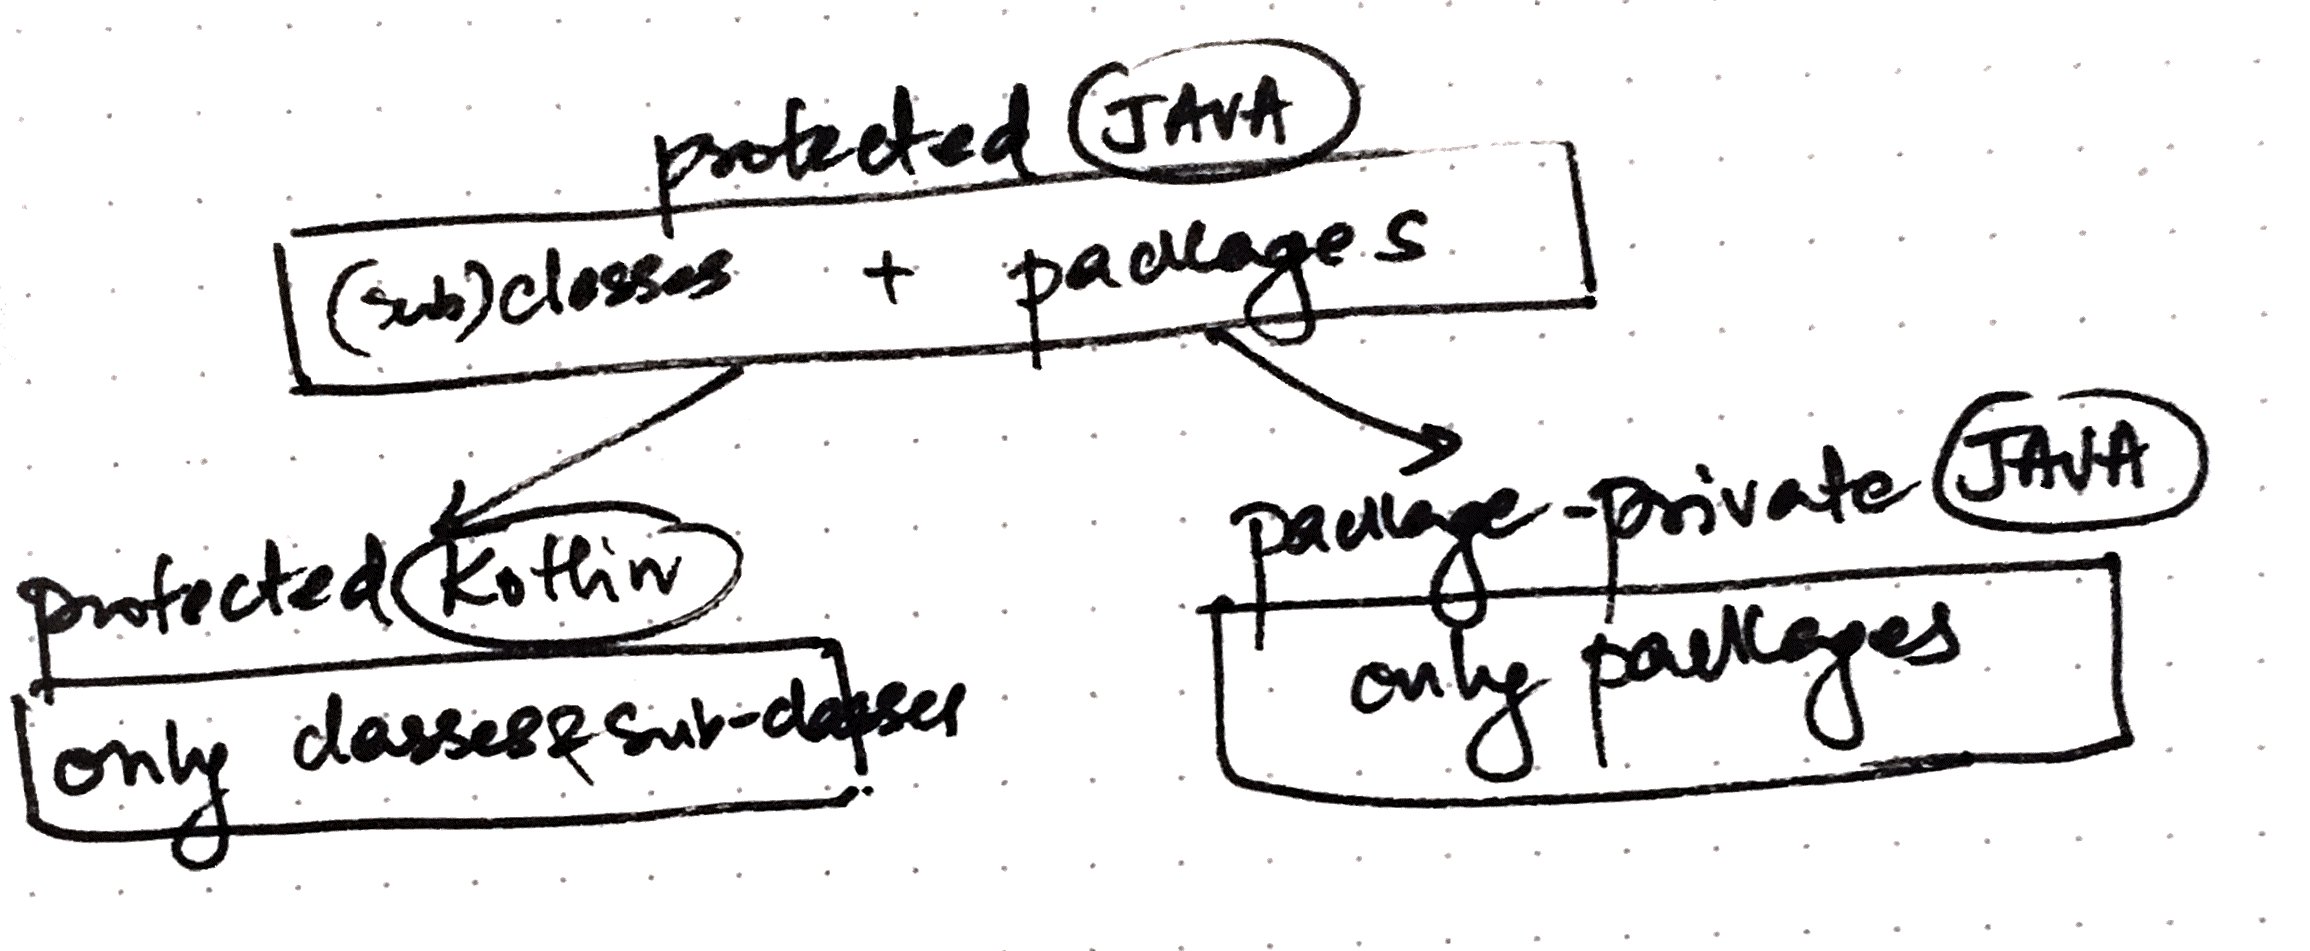 protected JAVA
(sub)classes + packages
protected Kotlin
only classes & sub-classes
package-private JAVA
only packages